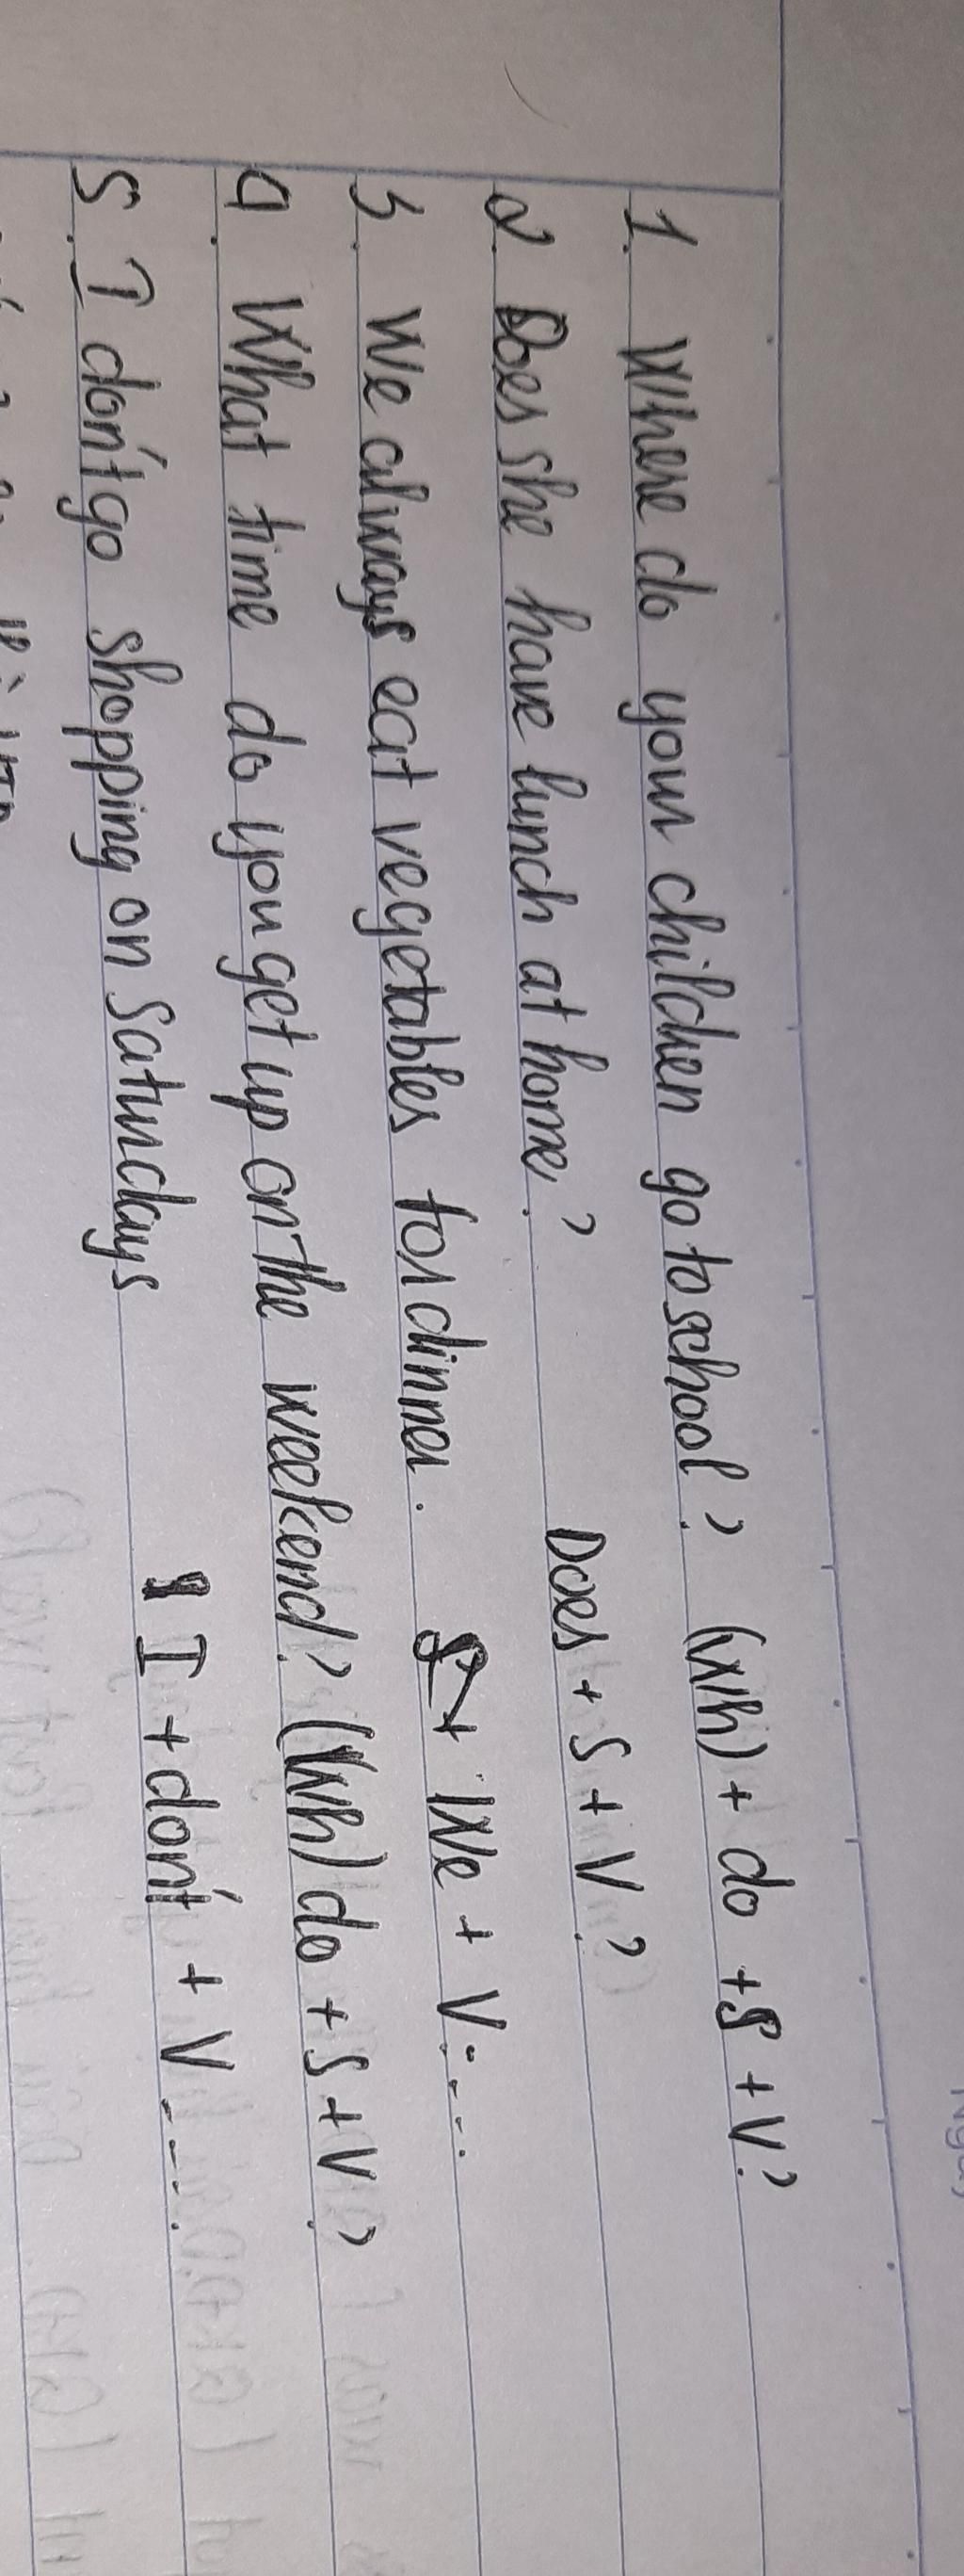 1. Where do your children go to school? (Wh) + do + S + V?
2. Does she have lunch at home? Does + S + V?
3. We always eat vegetables for dinner. We + V....
4. What time do you get up on the weekend? (Wh) do + S + V?
5. I don't go shopping on Saturdays I + don't + V ....